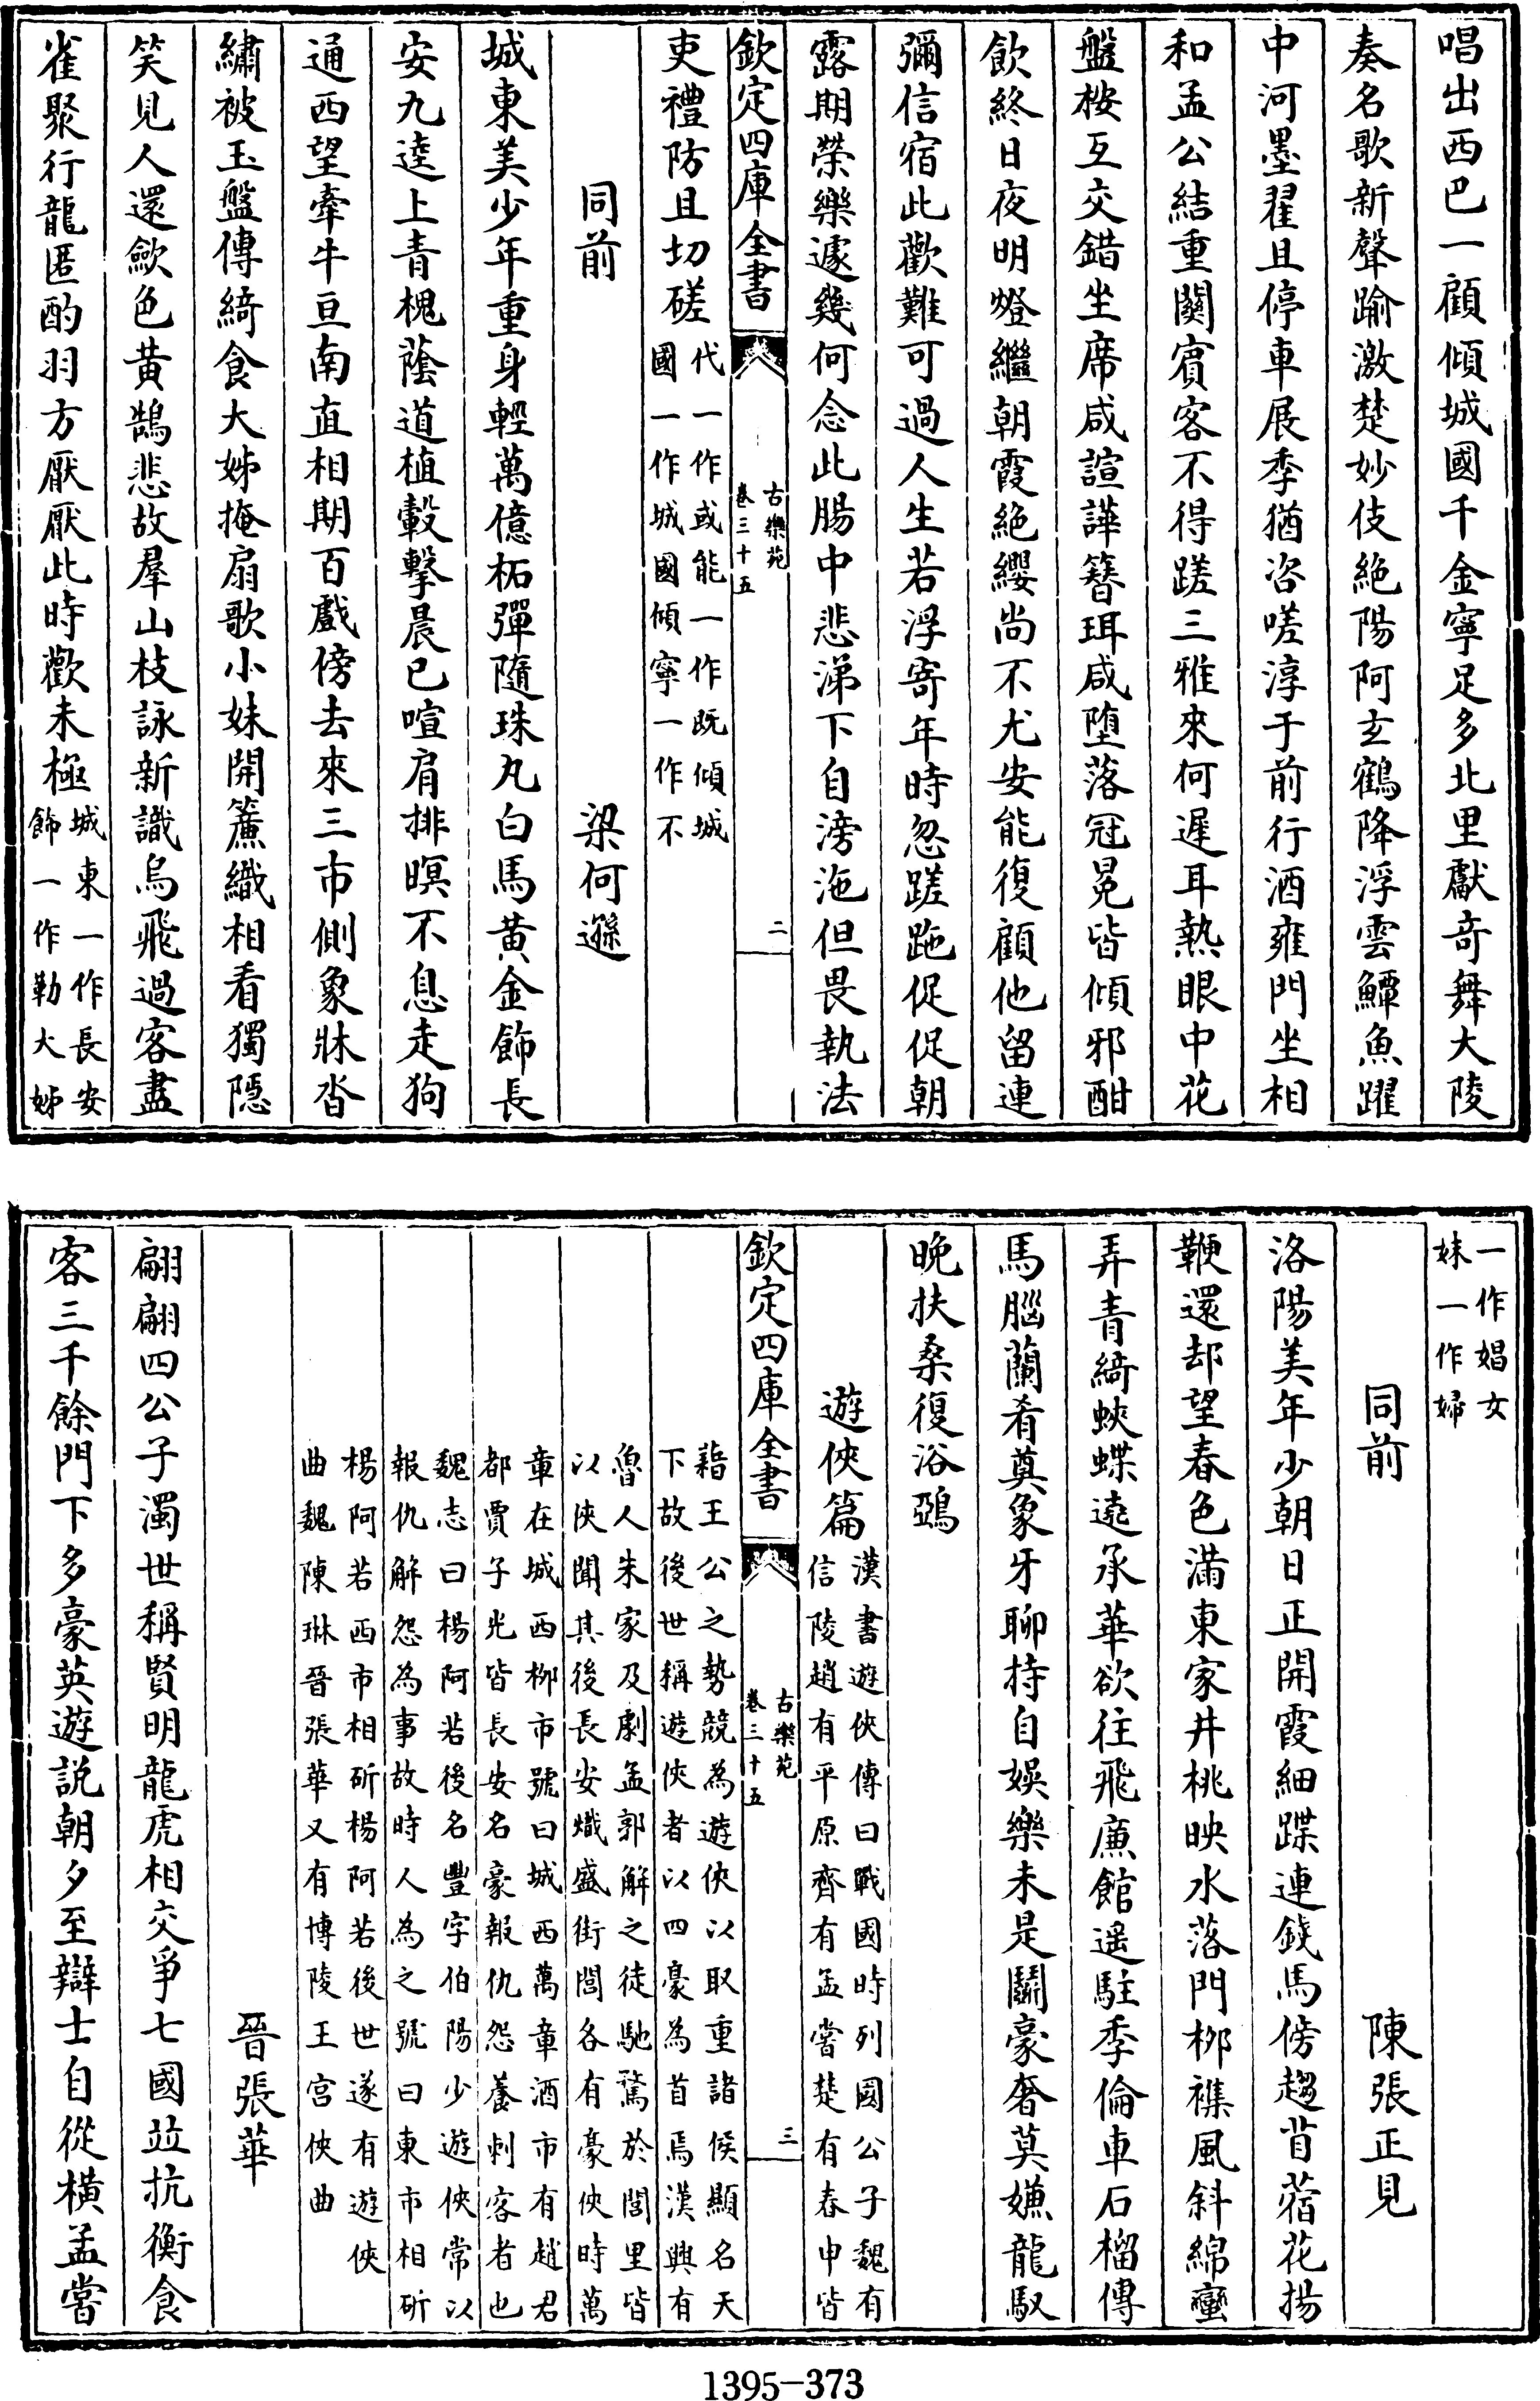 唱出西巴一顧傾城國千金寧足多北里獻奇舞大陵
奏名歌新聲踰激楚妙伎絶陽阿玄鶴降浮雲鱏魚躍
中河墨翟且停車展季猶咨嗟淳于前行酒雍門坐相
和孟公結重關賓客不得蹉三雅來何遲耳熱眼中花
盤桉互交錯坐席咸諠譁簪珥咸堕落冠冕皆傾邪酣
飲終日夜明燈繼朝霞絶纓尚不尤安能復顧他留連
彌信宿此歡難可過人生若浮寄年時忽蹉跎促促朝
露期榮樂遽幾何念此腸中悲涕下自滂沲但畏執法
欽定四庫全書
古樂苑
卷三十五
二
吏禮防且切磋
代一作或能一作既傾城
國一作城國傾寧一作不
同前
梁何遜
城東美少年重身輕萬億柘彈隨珠丸白馬黄金飾長
安九逵上青槐蔭道植轂擊晨已喧肩排暝不息走狗
通西望牽牛亘南直相期百戲傍去來三市側象牀沓
繡被玉盤傳綺食大姊掩扇歌小妹開簾織相看獨隱
笑見人還歛色黄鵠悲故羣山枝詠新識烏飛過客盡
雀聚行龍匿酌羽方厭厭此時歡未極
城東一作長安
飾一作勒大姊
一作娼女
妹一作婦
同前
陳張正見
洛陽美年少朝日正開霞細蹀連錢馬傍趨苜蓿花揚
鞭還却望春色滿東家井桃映水落門栁襍風斜綿蠻
弄青綺蛺蝶遶承華欲往飛廉館遥駐季倫車石榴傳
馬腦蘭肴奠象牙聊持自娱樂未是鬬豪奢莫嫌龍馭
晚扶桑復浴鵶
遊俠篇
漢書遊俠傳曰戰國時列國公子魏有
信陵趙有平原齊有孟嘗楚有春申皆
欽定四庫全書
古樂苑
卷三十五
三
藉王公之勢競為遊俠以取重諸侯顯名天
下故後世稱遊俠者以四豪為首焉漢興有
魯人朱家及劇孟郭解之徒馳騖於閭里皆
以俠聞其後長安熾盛街閭各有豪俠時萬
章在城西栁市號曰城西萬章酒市有趙君
都賈子光皆長安名豪報仇怨養刺客者也
魏志曰楊阿若後名豐字伯陽少遊俠常以
報仇解怨為事故時人為之號曰東市相斫
楊阿若西市相斫楊阿若後世遂有遊俠
曲魏陳琳晉張華又有博陵王宫俠曲
晉張華
翩翩四公子濁世稱賢明龍虎相交爭七國並抗衡食
客三千餘門下多豪英遊説朝夕至辯士自從横孟嘗
1395-373